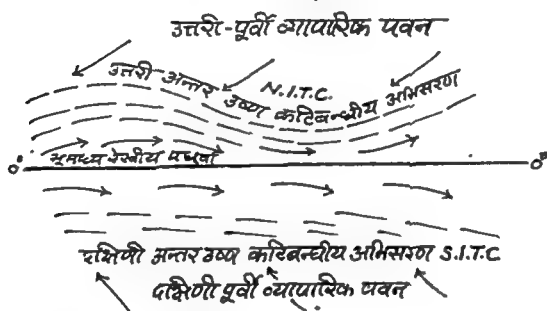 उत्तरी-पूर्वी व्यापारिक पवन
उत्तरी अन्तर उष्ण कटिबन्धीय अभिसरण
N.I.T.C.
भूमध्य रेखीय पछुवा
0° 0°
दक्षिणी अन्तर उष्ण कटिबन्धीय अभिसरण S.I.T.C.
दक्षिणी पूर्वी व्यापारिक पवन